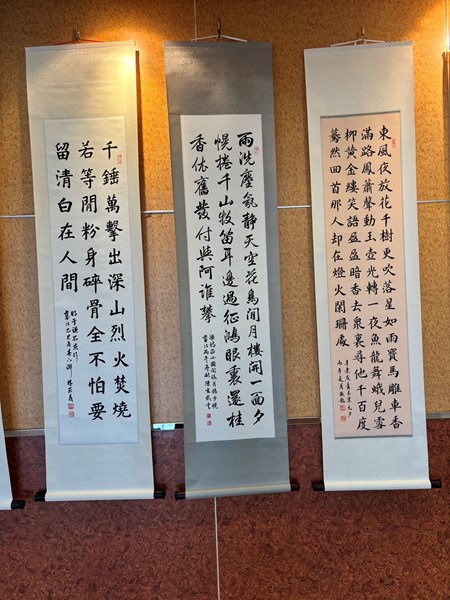 東風夜放花千樹更吹落星如雨寶馬雕車香
滿路鳳簫聲動玉壺光轉一夜魚龍舞蛾兒雪
柳黃金縷笑語盈盈暗香去眾裏尋他千百度
驀然回首那人却在燈火闌珊處
辛棄疾青玉案元夕
雨洗塵氛靜天空花鳥閒月樓開一面夕
幌捲千山牧笛耳邊過征鴻眼裏還桂
香依舊發付與阿誰攀
千錘萬擊出深山烈火焚燒
若等閒粉身碎骨全不怕要
留清白在人間
明于謙石灰吟